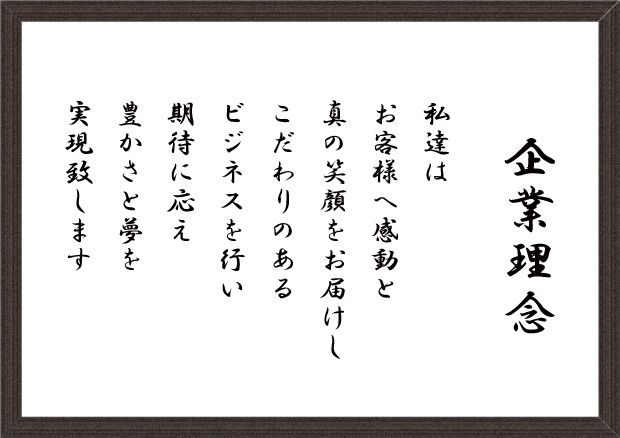 企業理念
私達は
お客様へ感動と
真の笑顔をお届けし
こだわりのある
ビジネスを行い
期待に応え
豊かさと夢を
実現致します